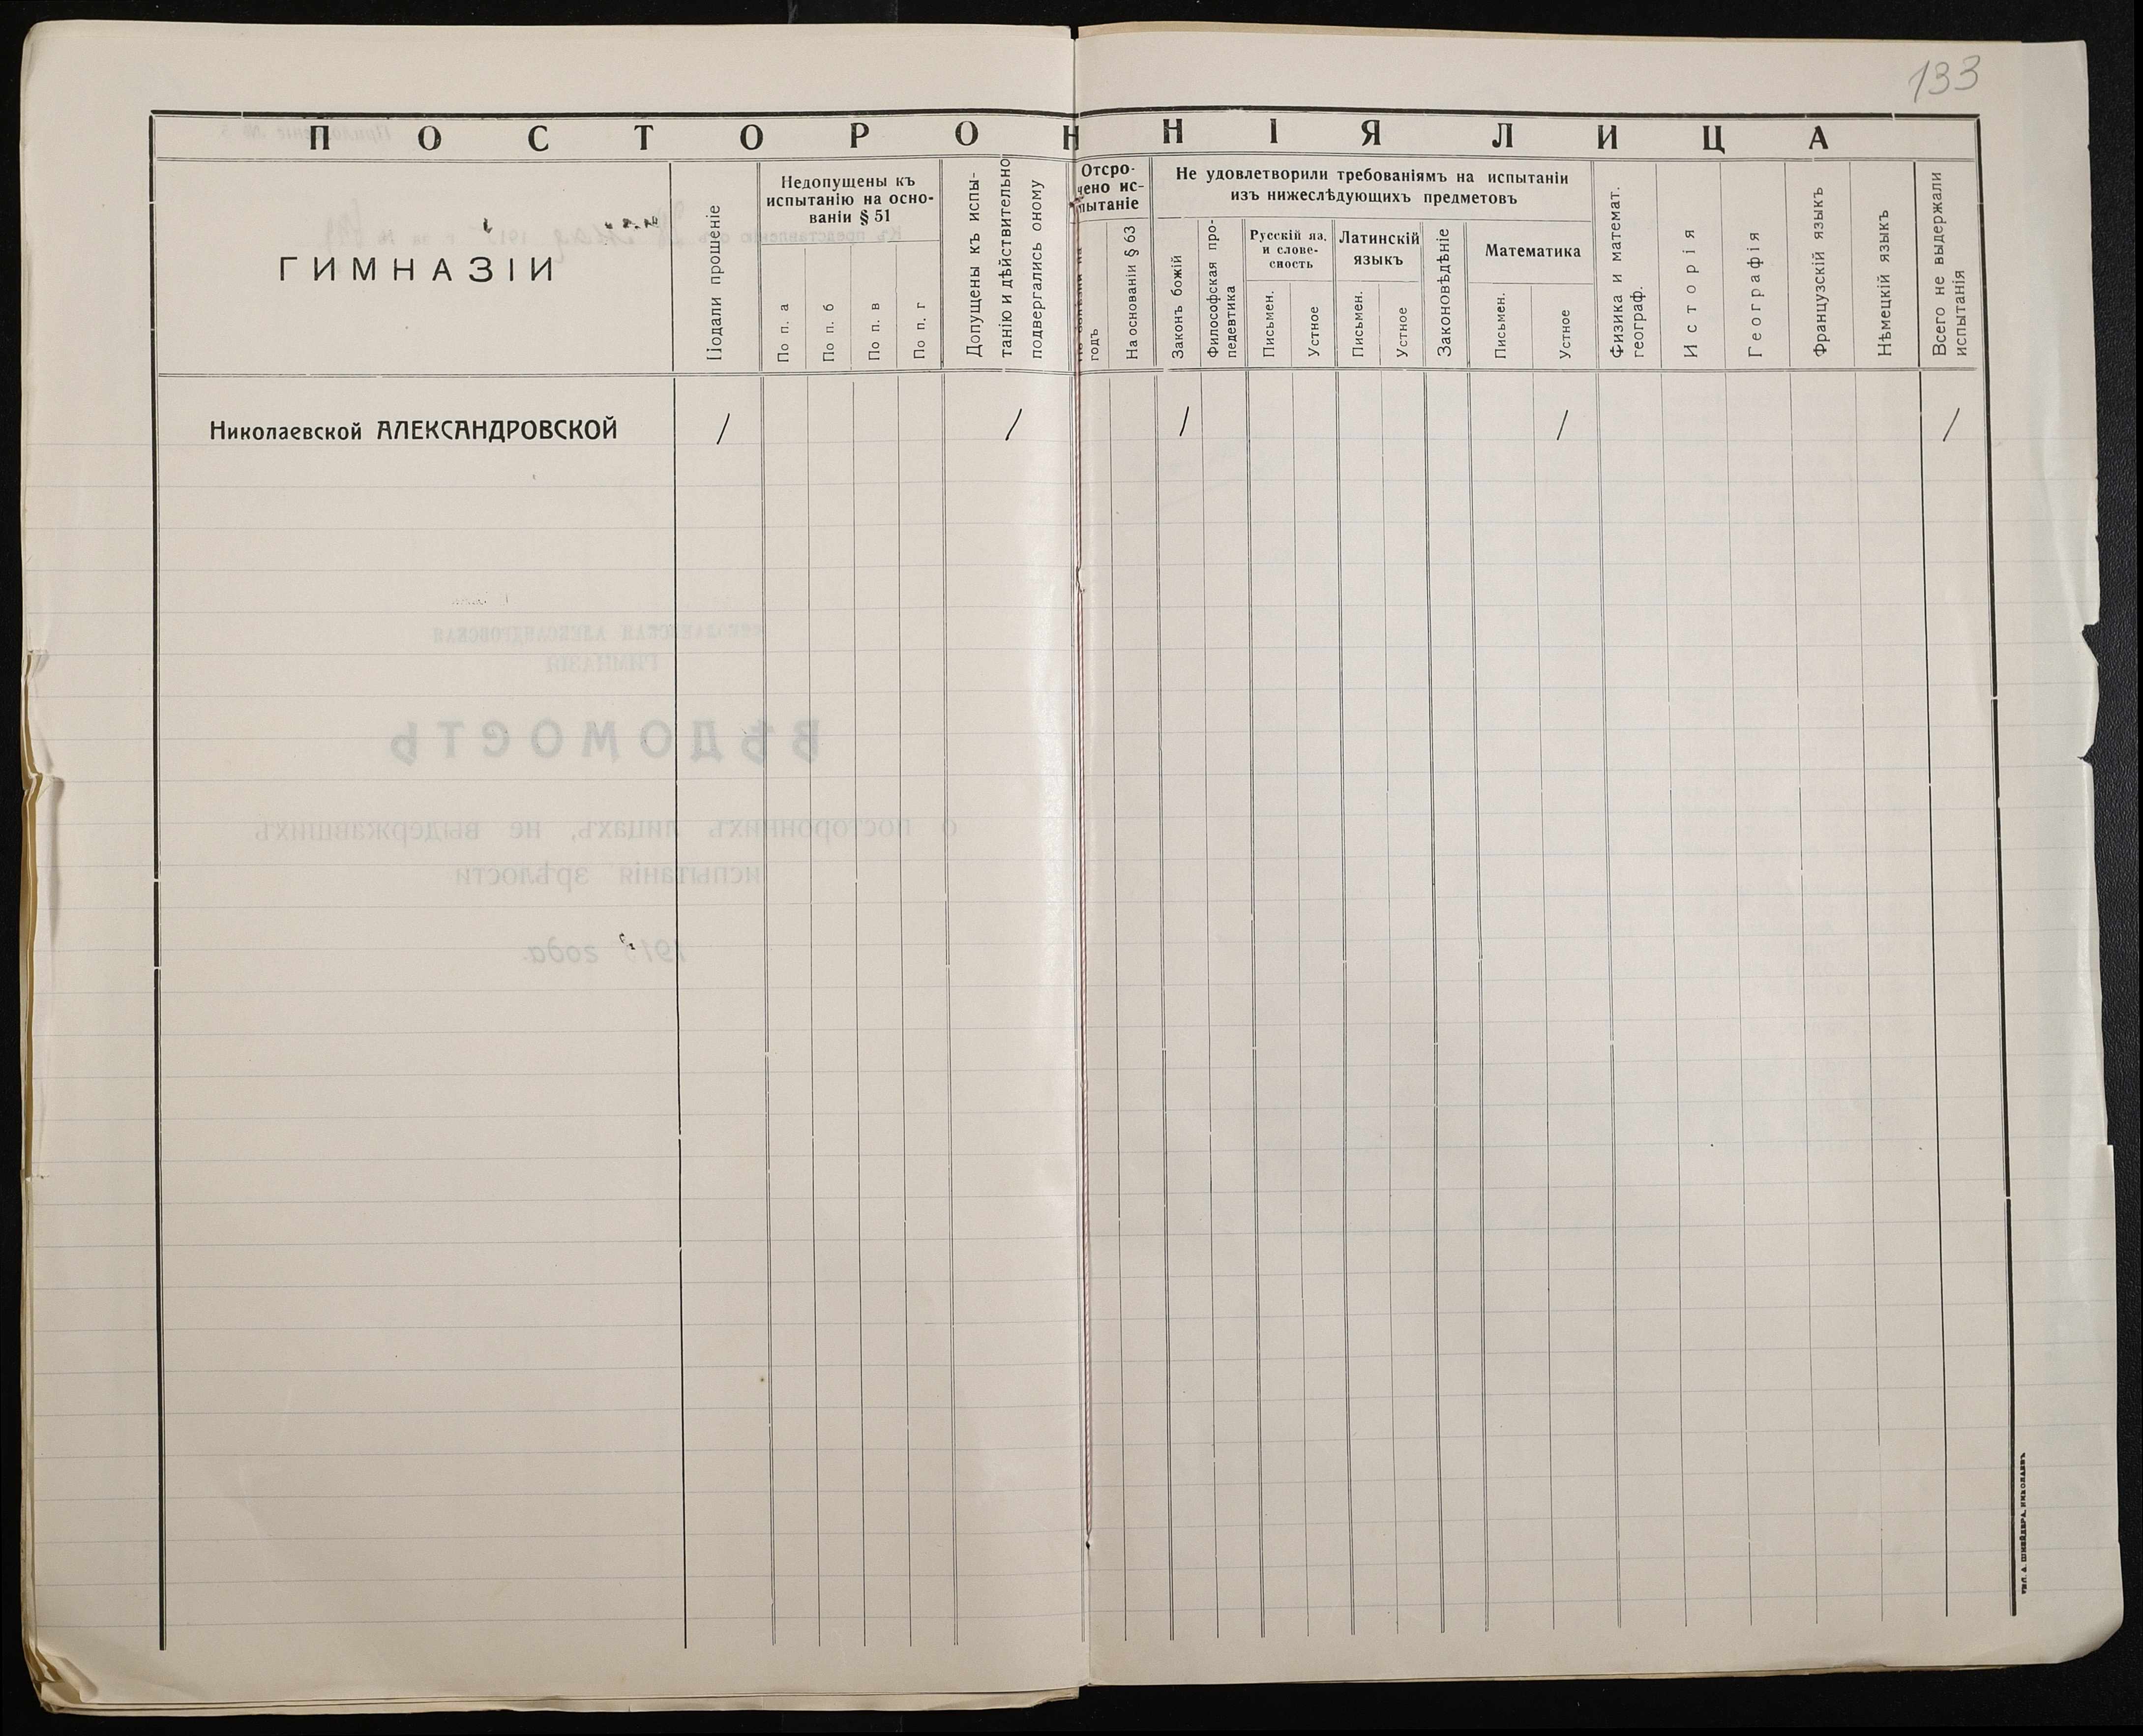 133
ПОСТОРОННІЯ ЛИЦА
ГИМНАЗІИ
Подали прошеніе
Недопущены къ
испытанію на осно-
ваніи § 51
По п. а
По п. б
По п. в
По п. г
Допущены къ испы-
танію и дѣйствительно
подвергались оному
Отсро-
чено ис-
пытаніе
годъ
На основаніи § 63
Не удовлетворили требованіямъ на испытаніи
изъ нижеслѣдующихъ предметовъ
Законъ божій
Философская про-
педевтика
Русскій яз.
и слове-
сность
Письмен.
Устное
Латинскій
языкъ
Письмен.
Устное
Законовѣдѣніе
Математика
Письмен.
Устное
Физика и математ.
географ.
Исторія
Географія
Французскій языкъ
Нѣмецкій языкъ
Всего не выдержали
испытанія
Николаевской АЛЕКСАНДРОВСКОЙ / / / / /
ВѢДОМОСТЬ
о постороннихъ лицахъ, не выдержавшихъ
испытанія зрѣлости
ТИП. А. ШНЕЙДЕРА, НИКОЛАЕВЪ